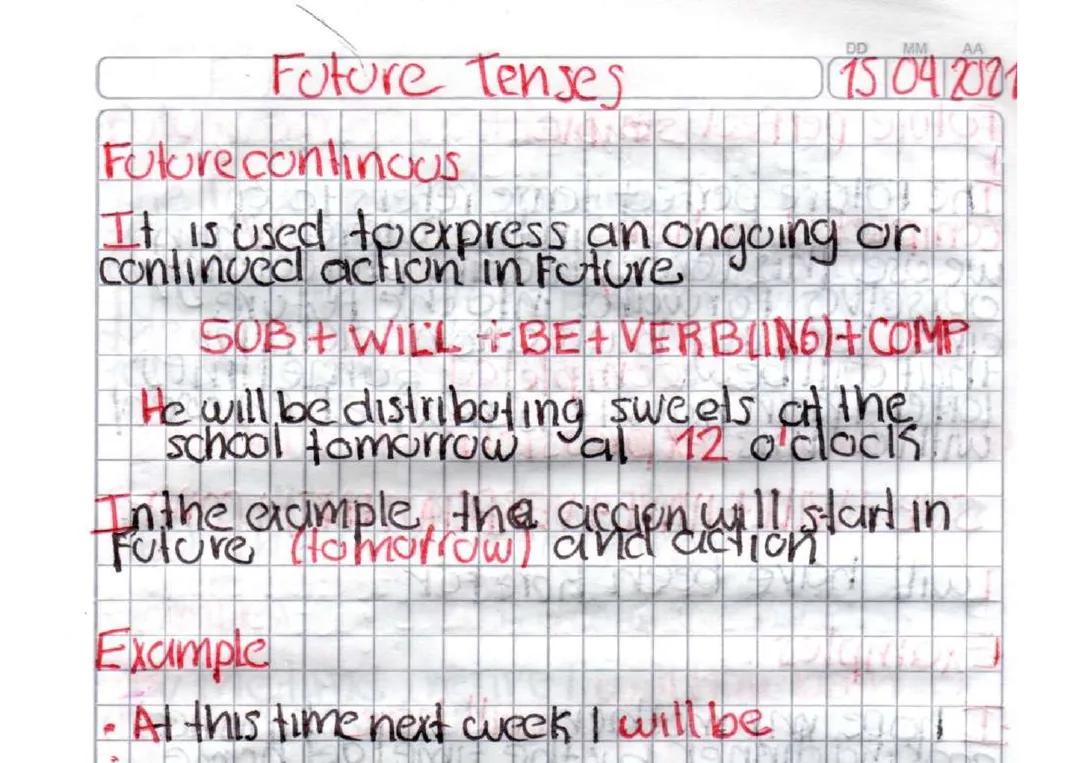 DD MM AA
Future Tenses 15 04 2021
Future continous
It is used to express an ongoing or
continued action in Future
SUB + WILL + BE + VERB(ING) + COMP
He will be distributing sweets at the
school tomorrow at 12 o'clock.
In the example, the accion will start in
Future (tomorrow) and action
Example
• At this time next week I will be